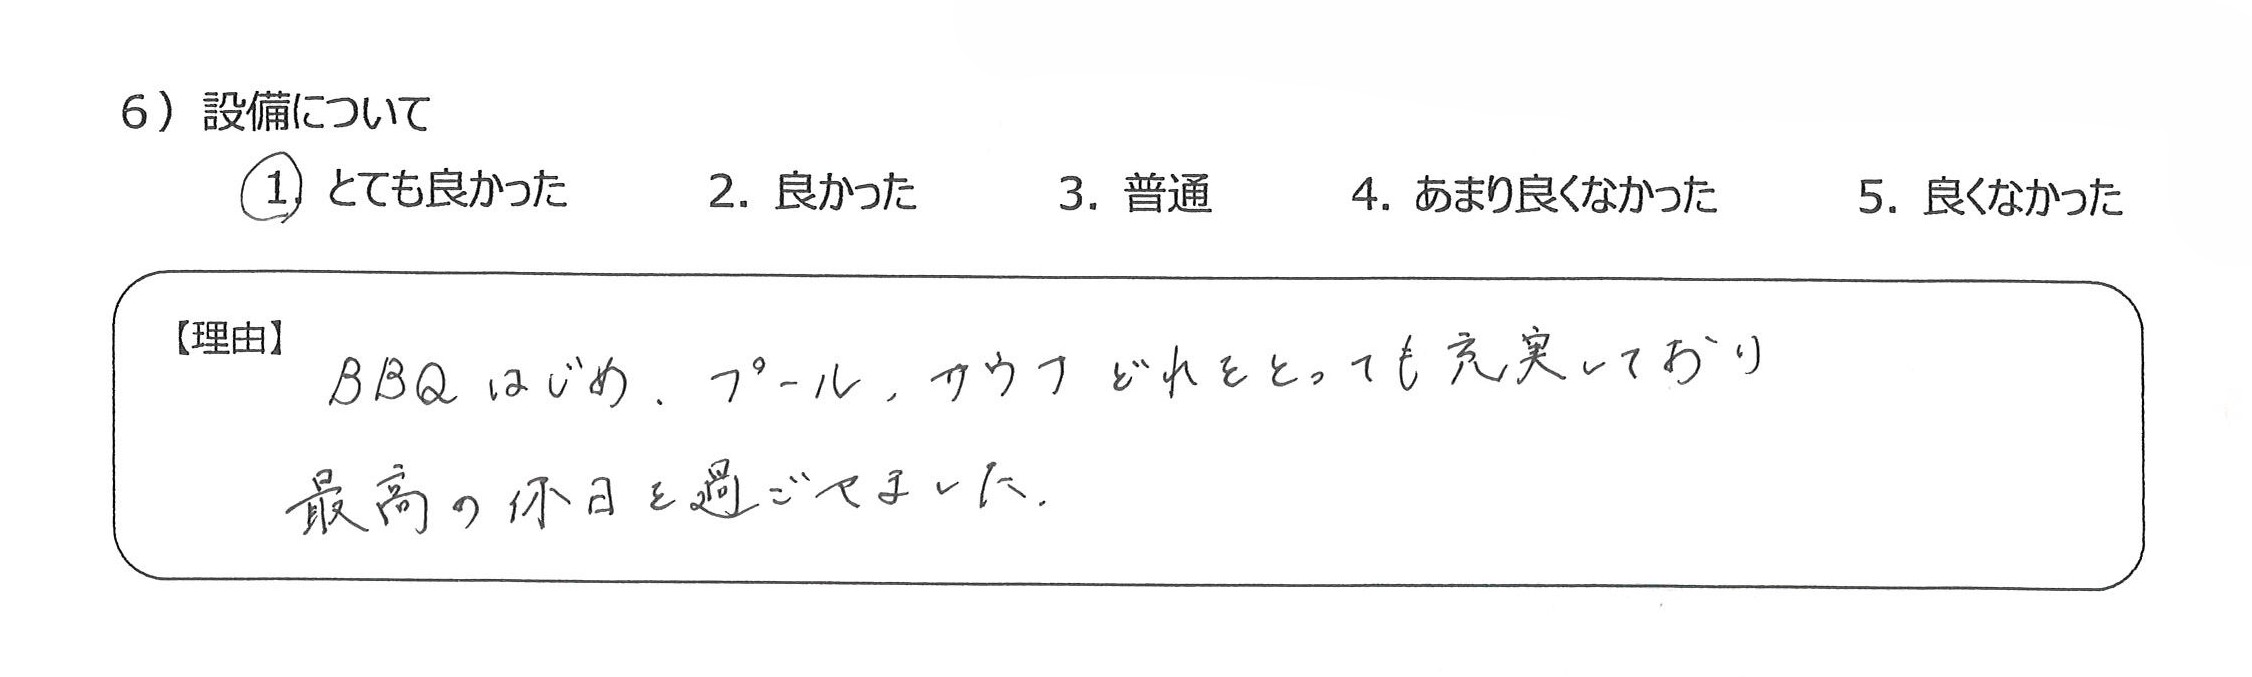 6）設備について
1. とても良かった 2. 良かった 3. 普通 4. あまり良くなかった 5. 良くなかった
【理由】
BBQはじめ、プール、サウナどれをとっても充実しており
最高の休日を過ごせました。